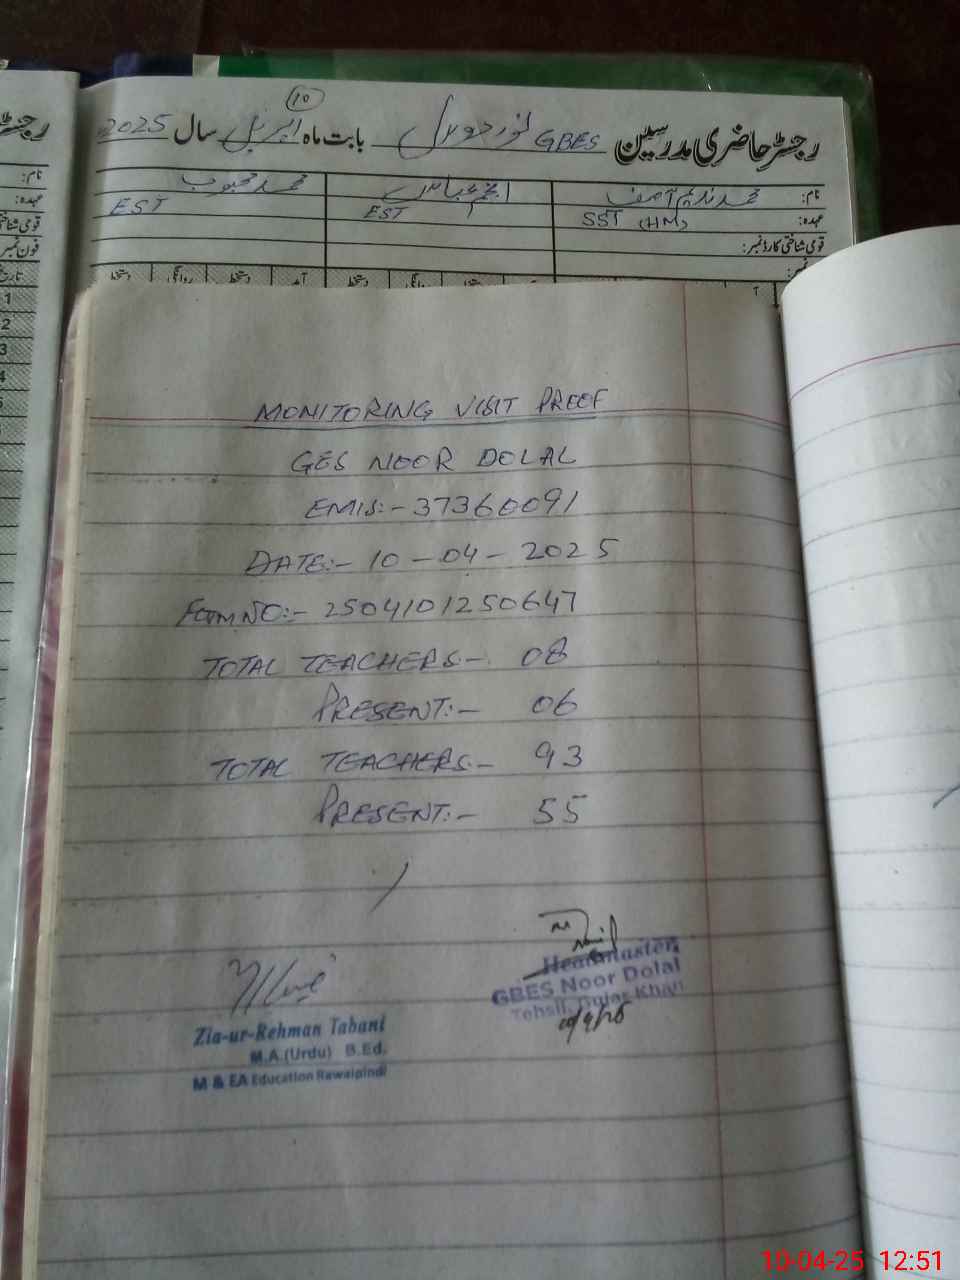 رجسٹر حاضری مدرسین GBES نور دولال بابت ماہ اپریل سال 2025
10
نام: محمد ندیم آصف
عہدہ: SST (HM)
قومی شناختی کارڈ نمبر:
انجم عباس
EST
محمد محبوب
EST
نام:
عہدہ:
فون نمبر
تاریخ
1
2
3
4
MONITORING VISIT PROOF
GES NOOR DOLAL
EMIS:- 37360091
DATE:- 10-04-2025
FORM NO:- 2504101250647
TOTAL TEACHERS:- 08
PRESENT:- 06
TOTAL TEACHERS:- 93
PRESENT:- 55
Zia-ur-Rehman Tabani
M.A.(Urdu) B.Ed.
M & EA Education Rawalpindi
Headmaster
GBES Noor Dolal
Tehsil. Gujar Khan
10/4/25
10-04-25 12:51